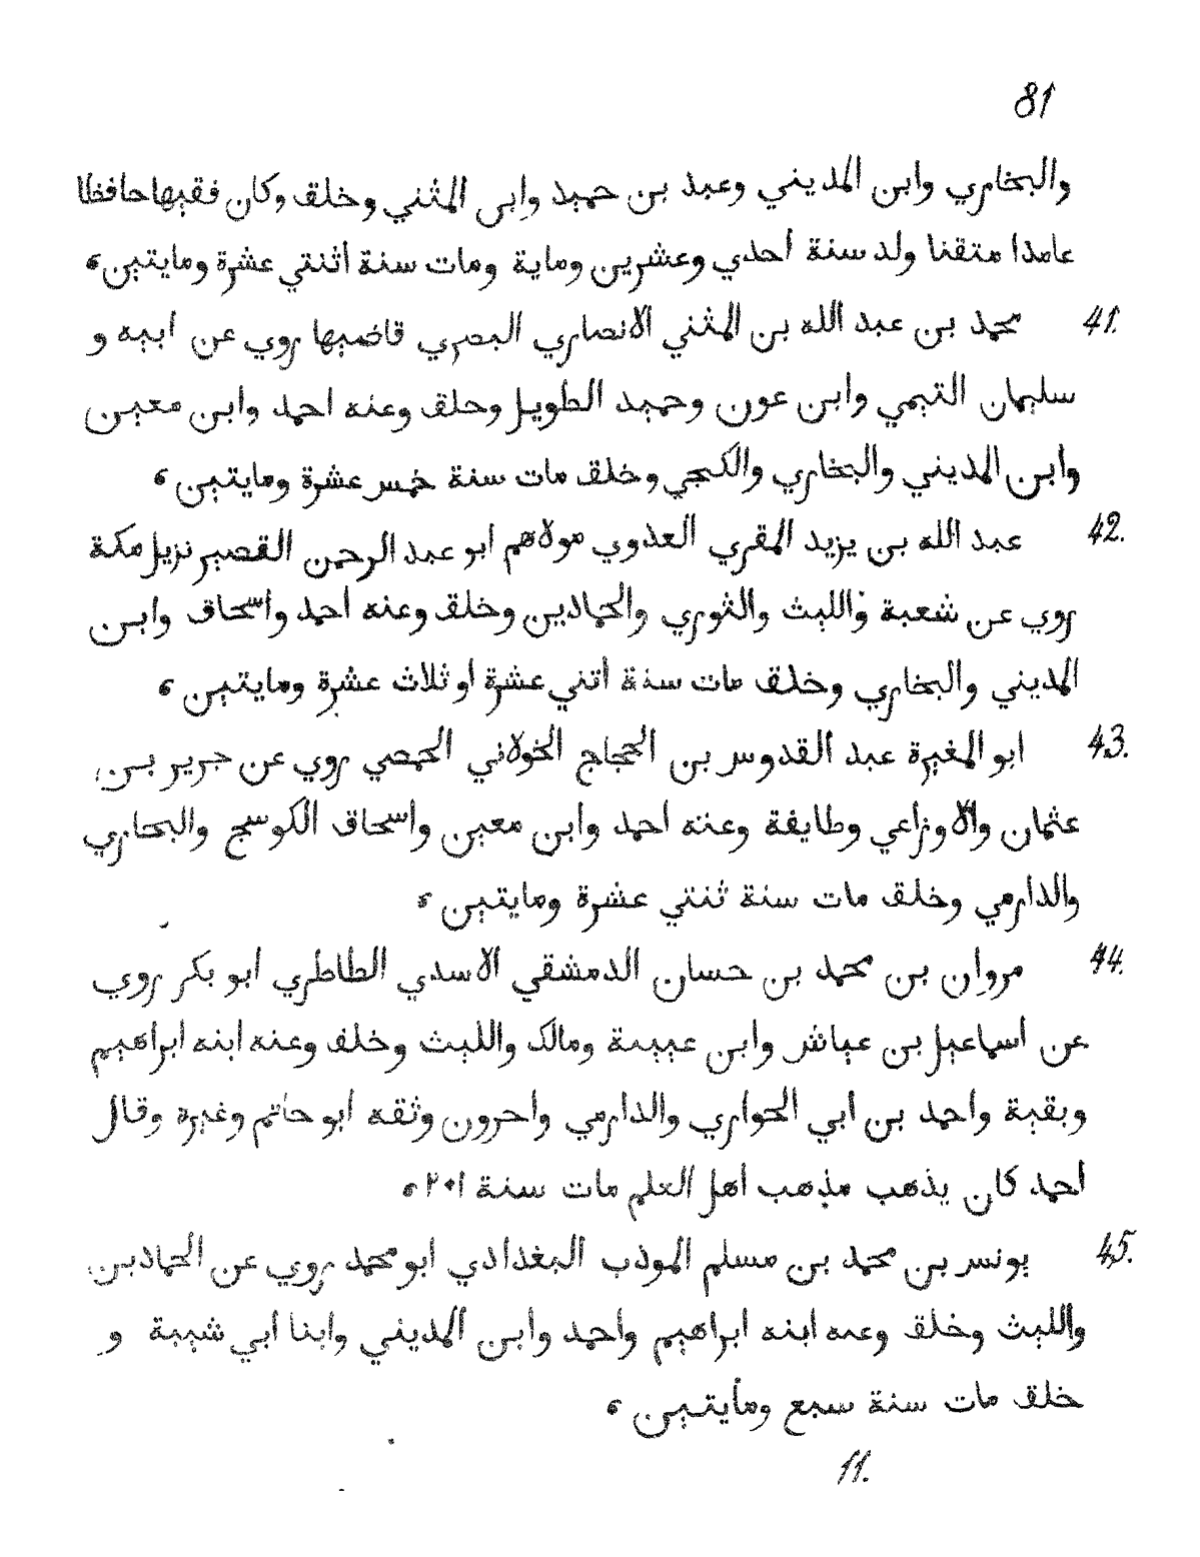 81
والبخاري وابن المديني وعبد بن حميد وابي المثني وخلق وكان فقيها حافظا
عابدا متقنا ولد سنة أحدي وعشرين وماية ومات سنة اثنتي عشرة ومايتين ه
41. محمد بن عبد الله بن المثني الانصاري البصري قاضيها روي عن ابيه و
سليمان التيمي وابن عون وحميد الطويل وحلق وعنه احمد وابن معين
وابن المديني والبخاري والكجي وخلق مات سنة خمس عشرة ومايتين ه
42. عبد الله بن يزيد المقري العدوي مولاهم ابو عبد الرحمن القصير نزيل مكة
روي عن شعبة والليث والثوري والحمادين وخلق وعنه احمد واسحاق وابن
المديني والبخاري وخلق مات سنة أتني عشرة او ثلاث عشرة ومايتين ه
43. ابو المغيرة عبد القدوس بن الحجاج الخولاني الحمصي روي عن جرير بن
عثمان والاوزاعي وطايفة وعنه احمد وابن معين واسحاق الكوسج والبخاري
والدارمي وخلق مات سنة ثنتي عشرة ومايتين ه
44. مروان بن محمد بن حسان الدمشقي الاسدي الطاطري ابو بكر روي
عن اسماعيل بن عياش وابن عيينة ومالك والليث وخلف وعنه ابنه ابراهيم
وبقية واحمد بن ابي الحواري والدارمي واحرون وثقه ابو حاتم وغيرة وقال
احمد كان يذهب مذهب اهل العلم مات سنة ٢٠١ ه
45. يونس بن محمد بن مسلم الموذب البغدادي ابو محمد روي عن الحمادين
والليث وخلق وعنه ابنه ابراهيم واحمد وابن المديني وابنا ابي شيبة و
خلق مات سنة سبع ومأيتين ه
11.